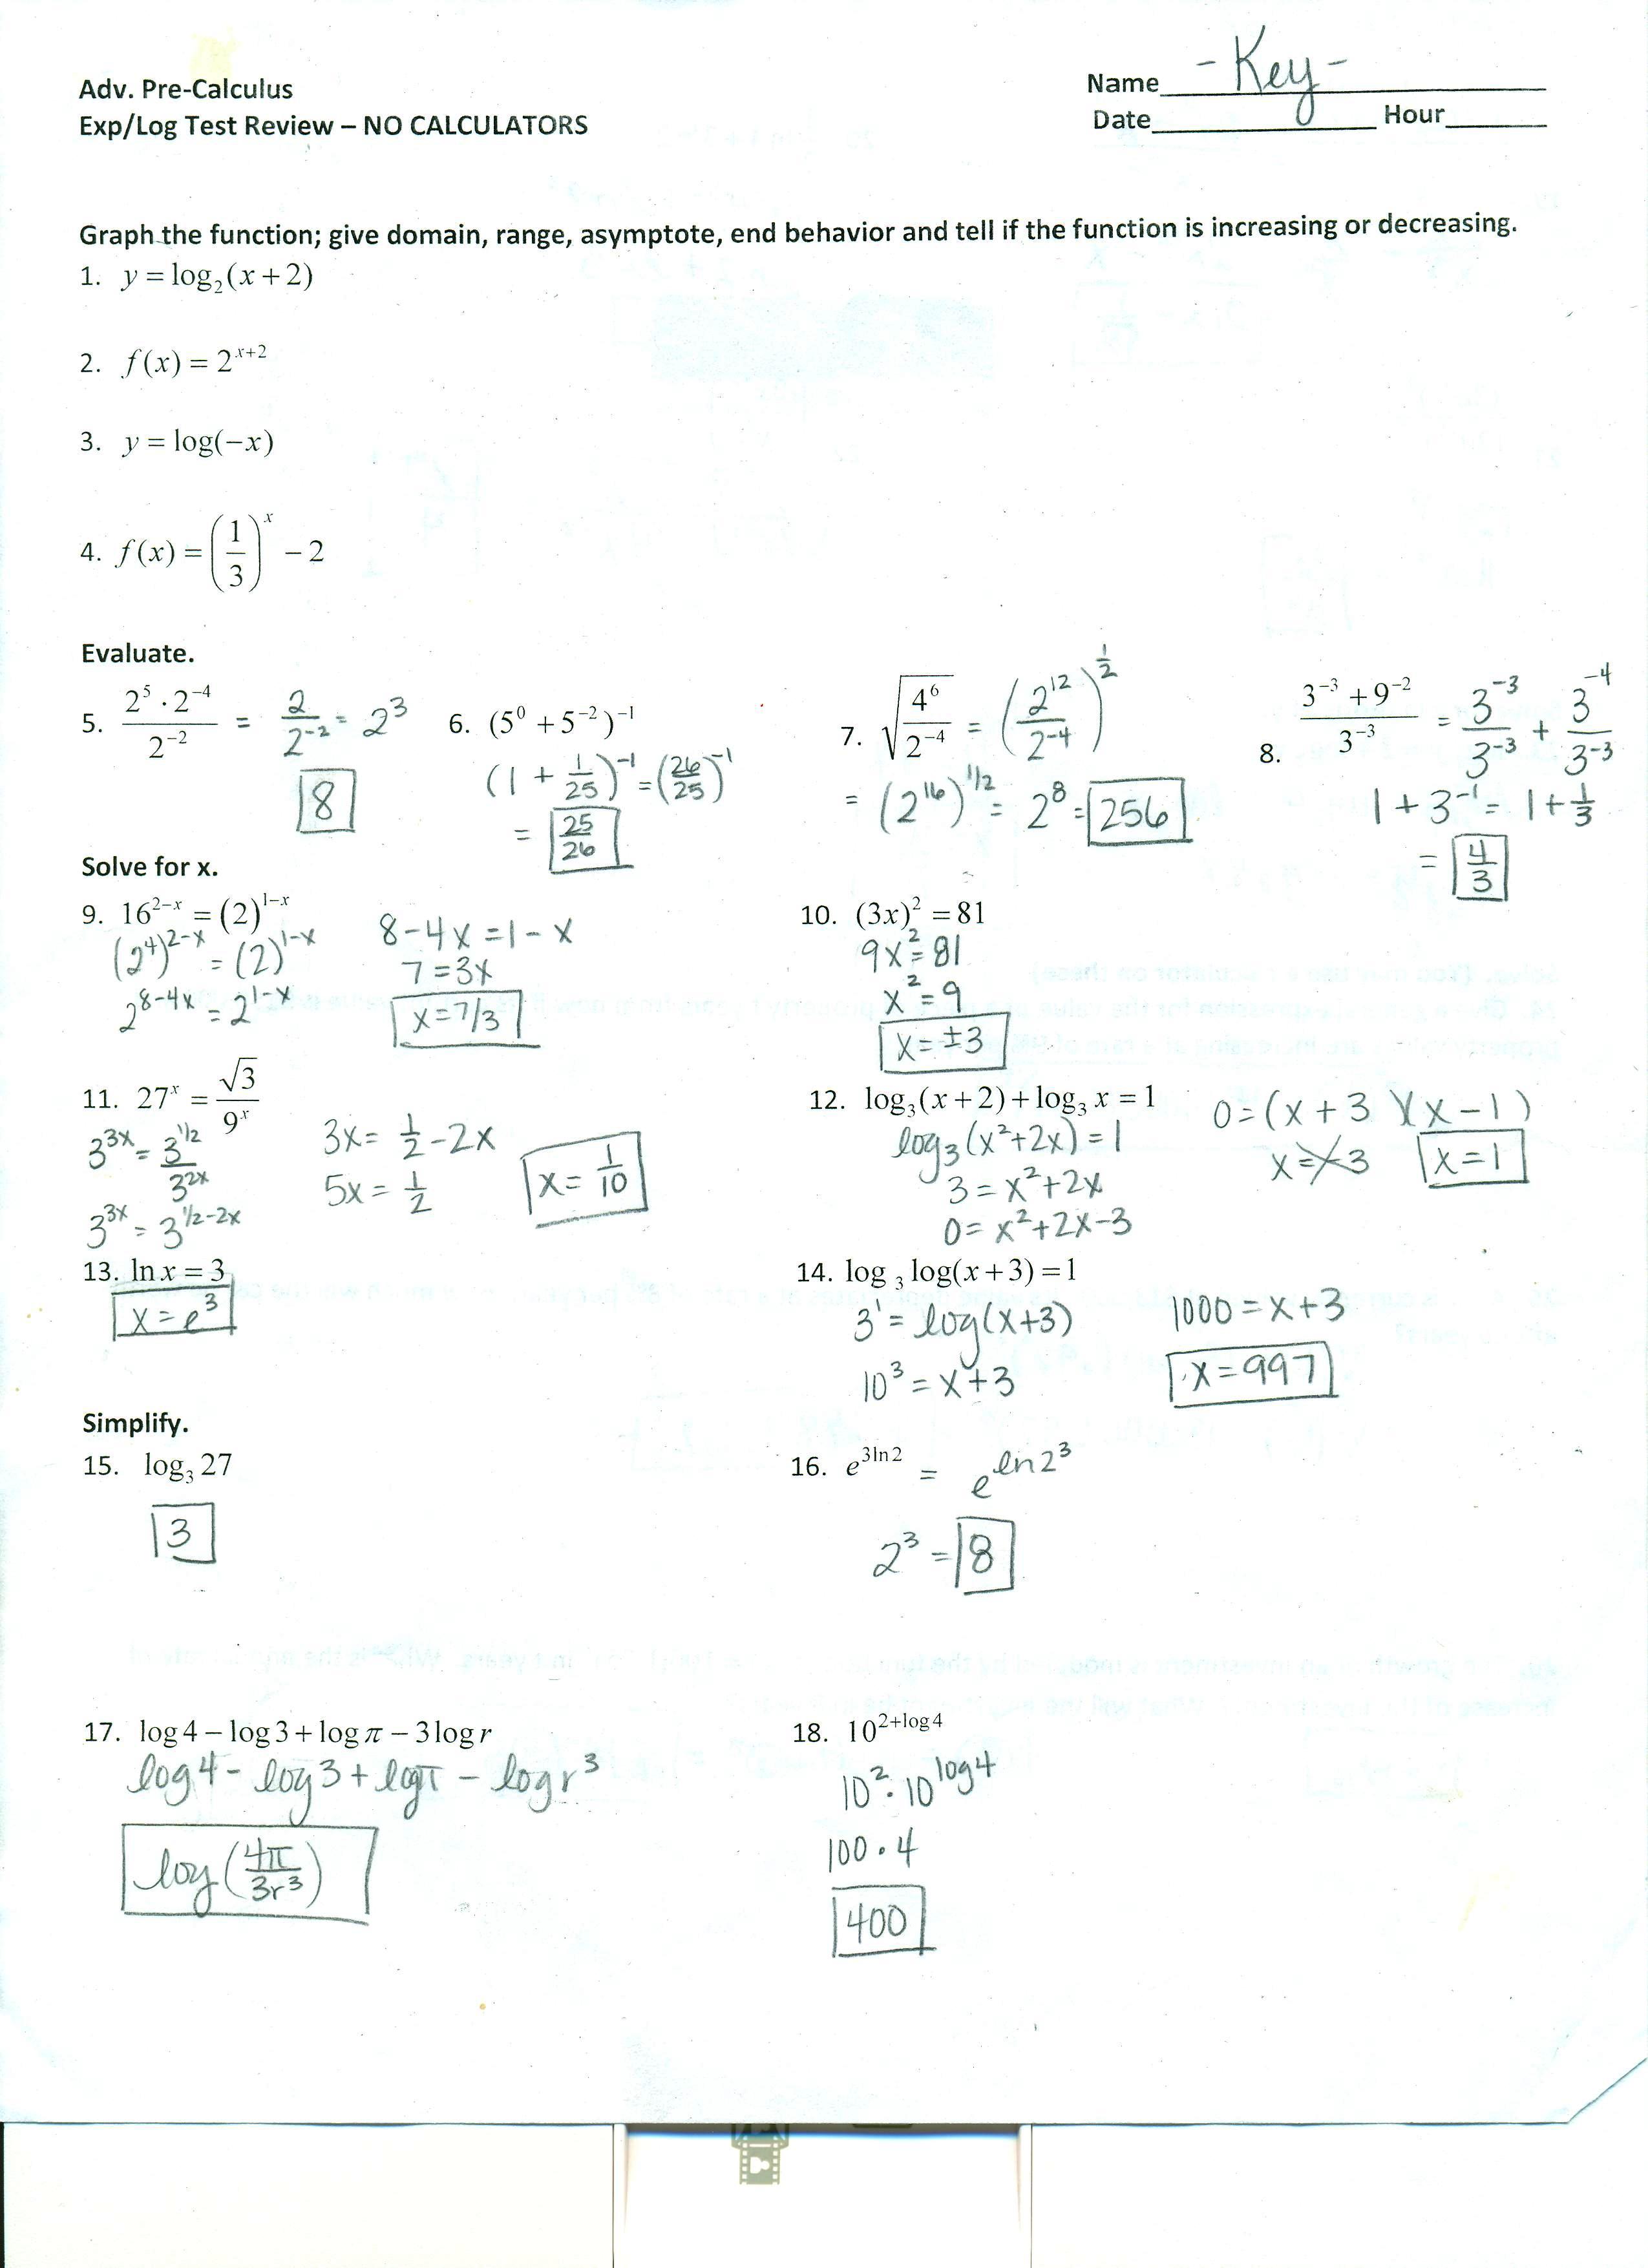 Adv. Pre-Calculus
Name -Key-
Exp/Log Test Review – NO CALCULATORS
Date Hour
Graph the function; give domain, range, asymptote, end behavior and tell if the function is increasing or decreasing.
1. y = log₂(x + 2)
2. f(x) = 2^(x+2)
3. y = log(−x)
4. f(x) = (1/3)^x − 2
Evaluate.
5. (2^5 · 2^−4)/(2^−2) = 2/(2^-2) = 2^3
8
6. (5^0 + 5^−2)^−1
(1 + 1/25)^-1 = (26/25)^-1
= 25/26
7. √(4^6/2^−4) = (2^12/2^-4)^(1/2)
= (2^16)^(1/2) = 2^8 = 256
8. (3^−3 + 9^−2)/(3^−3) = 3^-3/3^-3 + 3^-4/3^-3
1 + 3^-1 = 1 + 1/3
= 4/3
Solve for x.
9. 16^(2−x) = (2)^(1−x)
(2^4)^(2-x) = (2)^(1-x)
2^(8-4x) = 2^(1-x)
8-4x = 1-x
7 = 3x
x = 7/3
10. (3x)^2 = 81
9x^2 = 81
x^2 = 9
x = ±3
11. 27^x = √3/9^x
3^(3x) = 3^(1/2)/3^(2x)
3^(3x) = 3^(1/2-2x)
3x = 1/2 - 2x
5x = 1/2
x = 1/10
12. log₃(x + 2) + log₃ x = 1
log₃(x^2+2x) = 1
3 = x^2+2x
0 = x^2+2x-3
0 = (x+3)(x-1)
x = -3
x = 1
13. ln x = 3
x = e^3
14. log ₃ log(x + 3) = 1
3^1 = log(x+3)
10^3 = x+3
1000 = x+3
x = 997
Simplify.
15. log₃ 27
3
16. e^(3ln2) = e^(ln2^3)
2^3 = 8
17. log 4 − log 3 + log π − 3 log r
log4 - log3 + logπ - logr^3
log(4π/3r^3)
18. 10^(2+log4)
10^2 · 10^(log4)
100 · 4
400